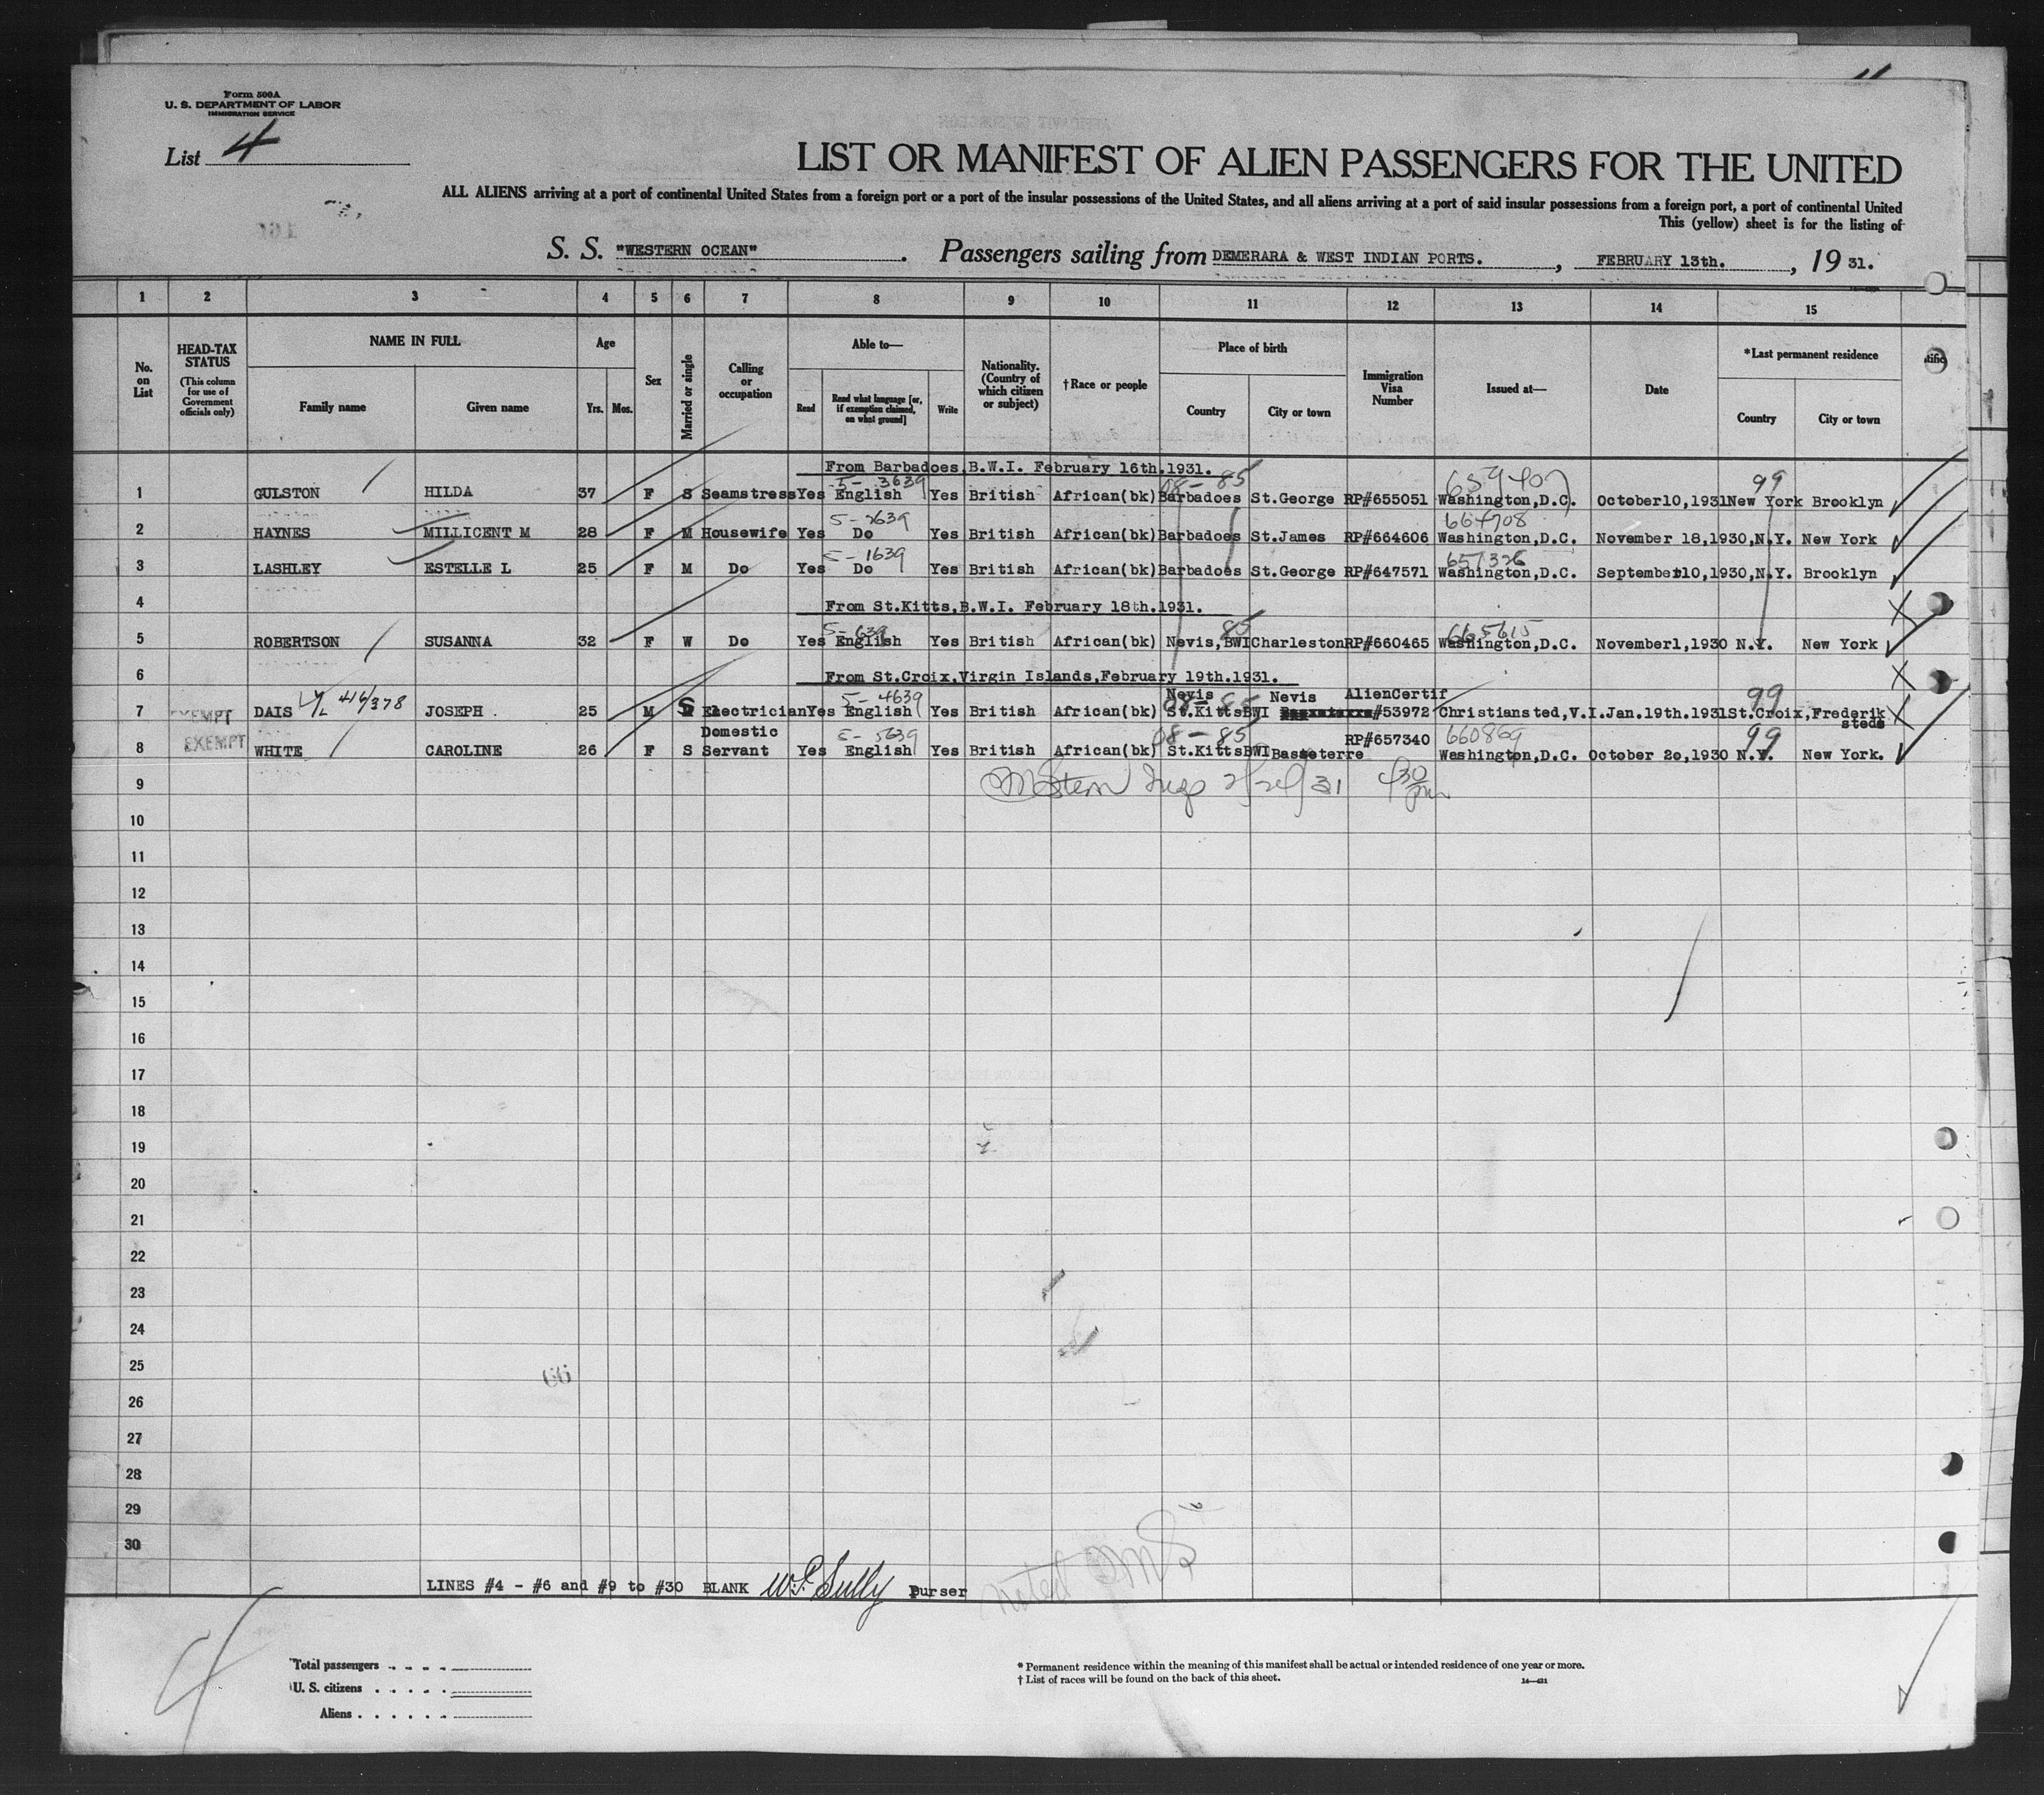 Form 500A
U. S. DEPARTMENT OF LABOR
IMMIGRATION SERVICE
List 4
LIST OR MANIFEST OF ALIEN PASSENGERS FOR THE UNITED
ALL ALIENS arriving at a port of continental United States from a foreign port or a port of the insular possessions of the United States, and all aliens arriving at a port of said insular possessions from a foreign port, a port of continental United
This (yellow) sheet is for the listing of
S. S. "WESTERN OCEAN". Passengers sailing from DEMERARA & WEST INDIAN PORTS., FEBRUARY 13th., 19 31.
1 2 3 4 5 6 7 8 9 10 11 12 13 14 15
No. on List
HEAD-TAX STATUS (This column for use of Government officials only)
NAME IN FULL
Family name Given name
Age
Yrs. Mos.
Sex
Married or single
Calling or occupation
Able to—
Read Read what language [or, if exemption claimed, on what ground] Write
Nationality. (Country of which citizen or subject)
†Race or people
Place of birth
Country City or town
Immigration Visa Number
Issued at—
Date
*Last permanent residence
Country City or town
From Barbadoes,B.W.I. February 16th.1931.
5- 3639 08-85 659407 99
1 GULSTON HILDA 37 F S Seamstress Yes English Yes British African(bk) Barbadoes St.George RP#655051 Washington,D.C. October10,1931 New York Brooklyn
5-2639 664708
2 HAYNES MILLICENT M 28 F M Housewife Yes Do Yes British African(bk) Barbadoes St.James RP#664606 Washington,D.C. November 18,1930, N.Y. New York
5-1639 651326
3 LASHLEY ESTELLE L 25 F M Do Yes Do Yes British African(bk) Barbadoes St.George RP#647571 Washington,D.C. September10,1930, N.Y. Brooklyn
4 From St.Kitts,B.W.I. February 18th.1931.
5-639 85 665615
5 ROBERTSON SUSANNA 32 F W Do Yes English Yes British African(bk) Nevis,BWI Charleston RP#660465 Washington,D.C. November1,1930 N.Y. New York
6 From St.Croix,Virgin Islands,February 19th.1931.
416/378 5-4639 Nevis 08-85 Nevis AlienCertif 99
7 EXEMPT DAIS JOSEPH 25 M S Electrician Yes English Yes British African(bk) St.KittsBWI #53972 Christiansted,V.I. Jan.19th.1931 St.Croix, Frederik
sted
Domestic 5-5639 08-85 RP#657340 660869 99
8 EXEMPT WHITE CAROLINE 26 F S Servant Yes English Yes British African(bk) St.KittsBWI Basseterre Washington,D.C. October 20,1930 N.Y. New York.
9
10
11
12
13
14
15
16
17
18
19
20
21
22
23
24
25
26
27
28
29
30
LINES #4 - #6 and #9 to #30 BLANK W.P. Sully Purser
noted
4
Total passengers
U. S. citizens
Aliens
* Permanent residence within the meaning of this manifest shall be actual or intended residence of one year or more.
† List of races will be found on the back of this sheet.
14—421